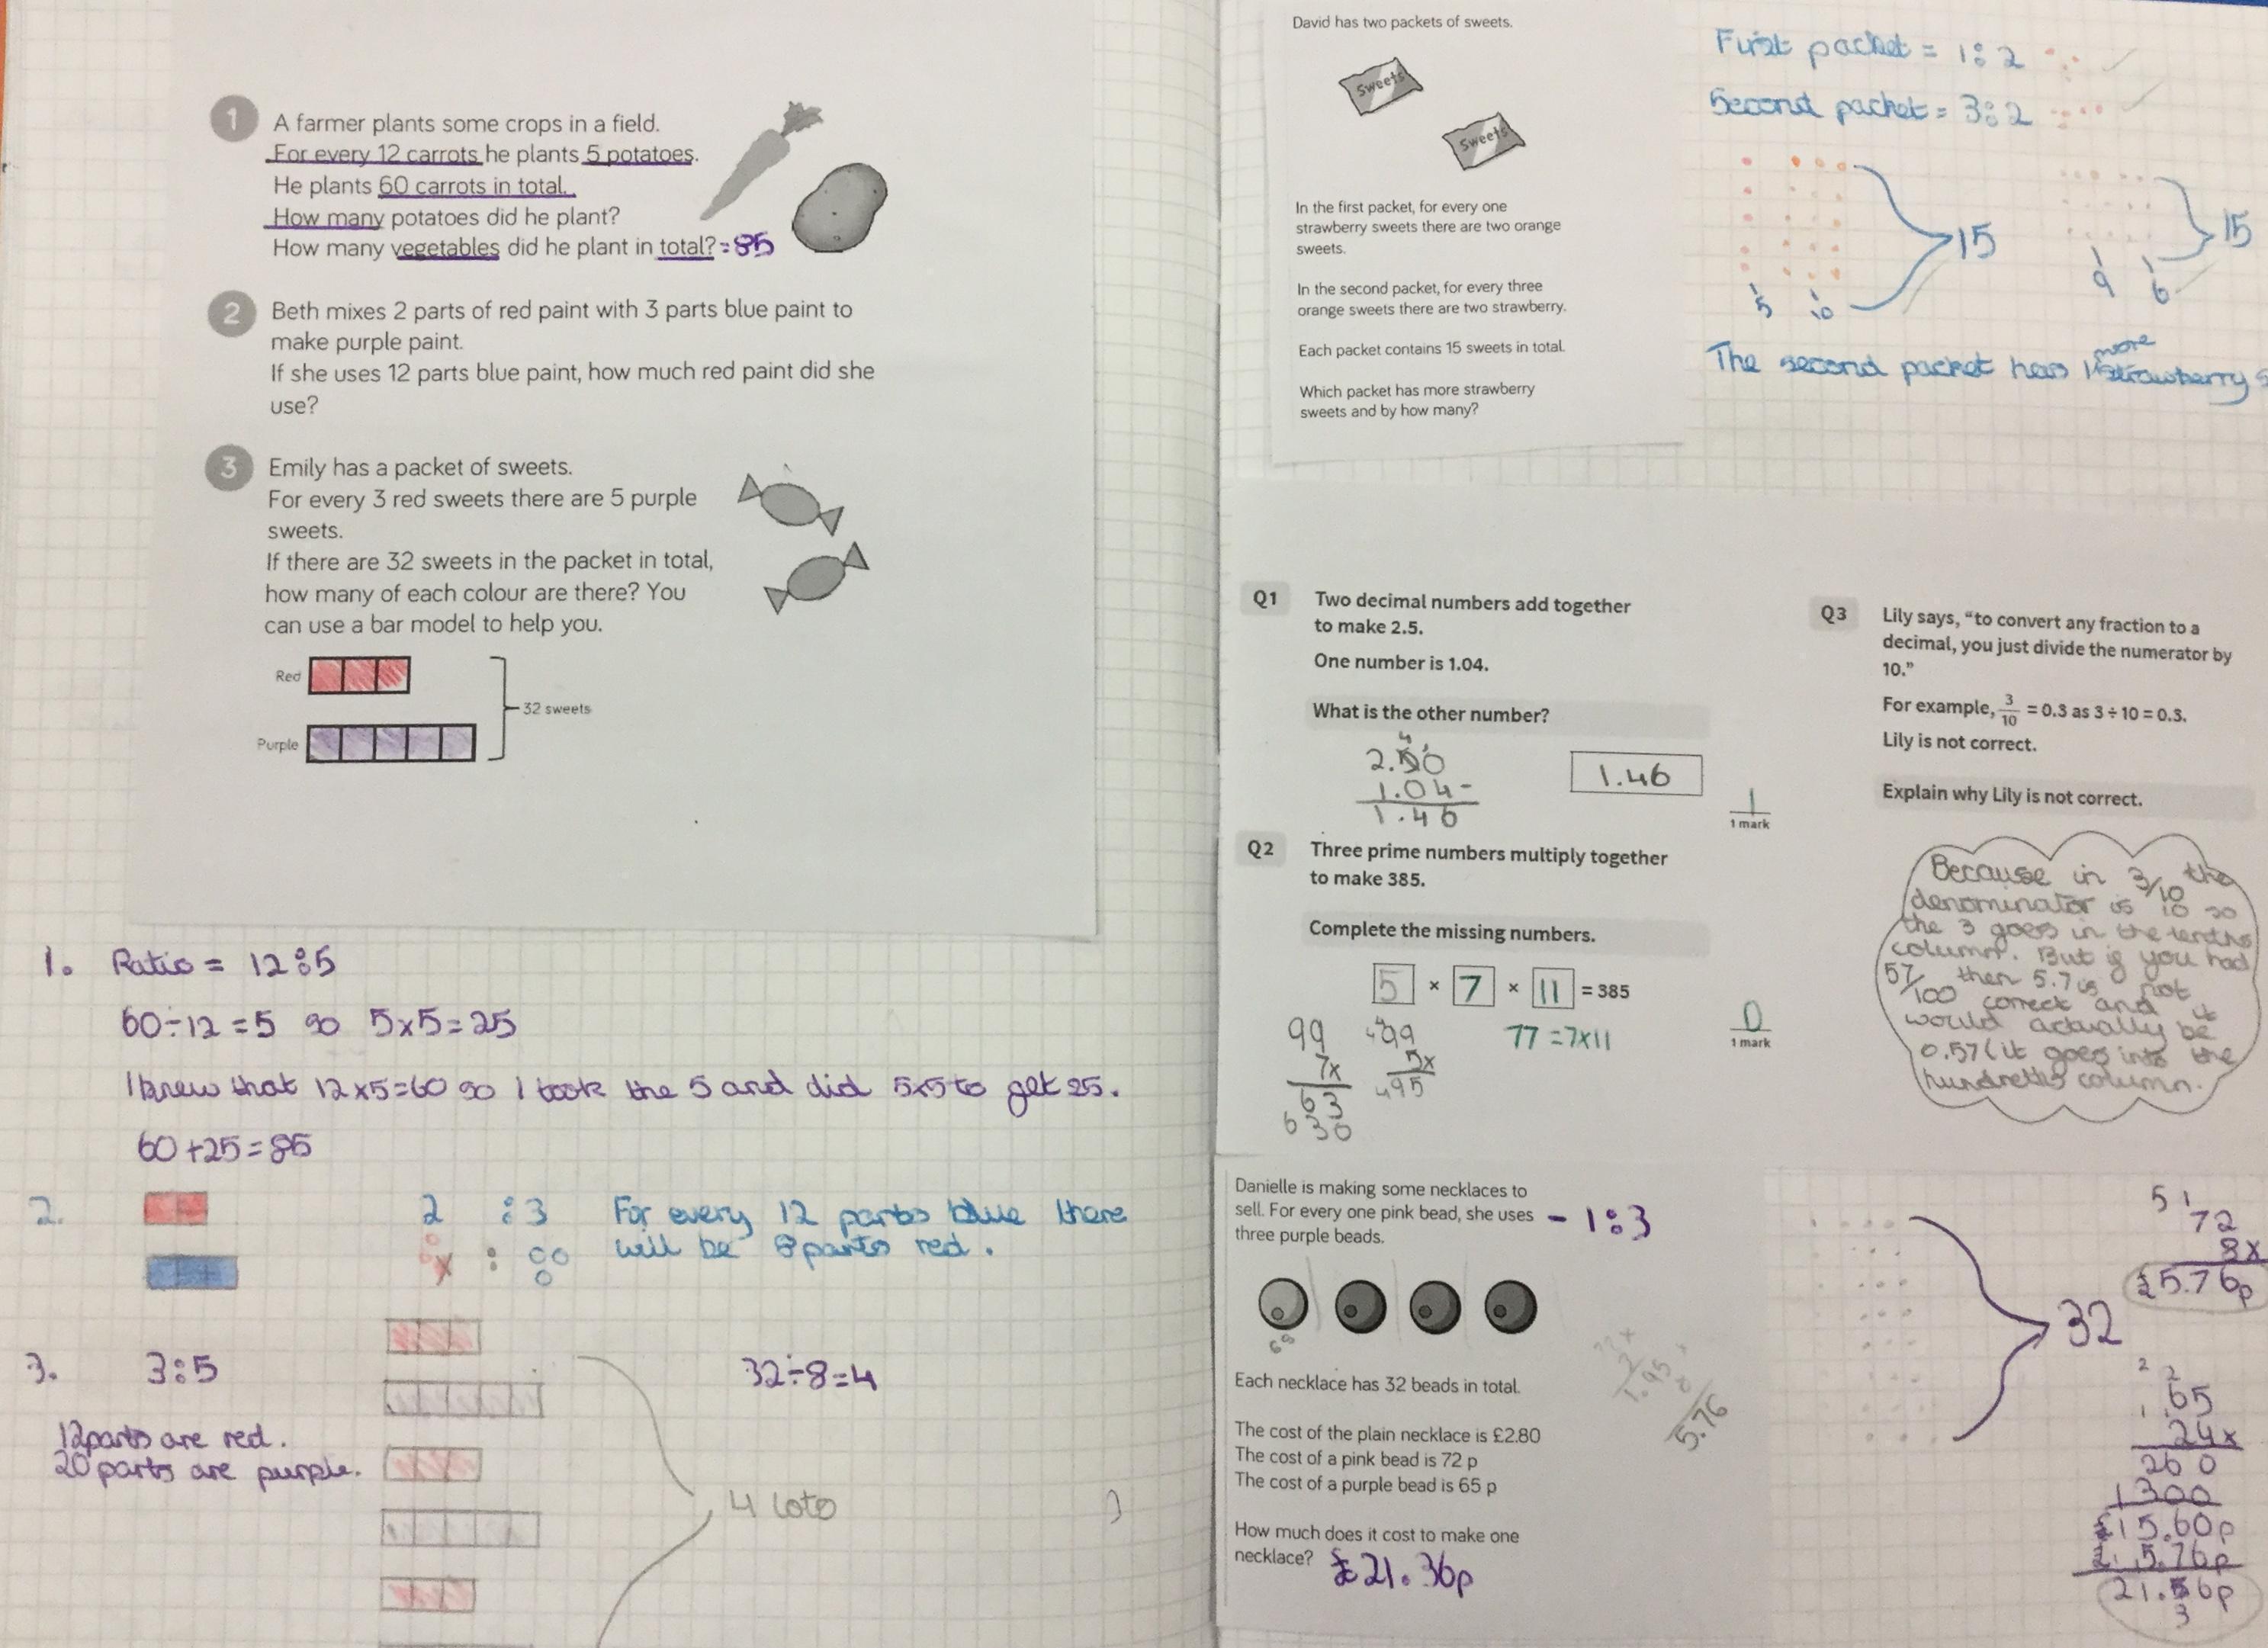 1
A farmer plants some crops in a field.
For every 12 carrots he plants 5 potatoes.
He plants 60 carrots in total.
How many potatoes did he plant?
How many vegetables did he plant in total? = 85
2
Beth mixes 2 parts of red paint with 3 parts blue paint to
make purple paint.
If she uses 12 parts blue paint, how much red paint did she
use?
3
Emily has a packet of sweets.
For every 3 red sweets there are 5 purple
sweets.
If there are 32 sweets in the packet in total,
how many of each colour are there? You
can use a bar model to help you.
Red
32 sweets
Purple
1. Ratio = 12:5
60÷12=5 so 5x5=25
I knew that 12x5=60 so I took the 5 and did 5x5 to get 25.
60+25=85
2. 2 :3 For every 12 parts blue there
will be 8 parts red.
3. 3:5 32÷8=4
12parts are red.
20 parts are purple.
4 lots
David has two packets of sweets.
Sweets
Sweets
In the first packet, for every one
strawberry sweets there are two orange
sweets.
In the second packet, for every three
orange sweets there are two strawberry.
Each packet contains 15 sweets in total.
Which packet has more strawberry
sweets and by how many?
First packet = 1:2
Second packet = 3:2
15
15
5 10
9 6
The second packet has 1 more strawberry
Q1
Two decimal numbers add together
to make 2.5.
One number is 1.04.
What is the other number?
2.50
1.04-
1.46
1.46
1
1 mark
Q2
Three prime numbers multiply together
to make 385.
Complete the missing numbers.
5 × 7 × 11 = 385
99
7x
63
630
99
5x
495
77=7x11
0
1 mark
Q3
Lily says, “to convert any fraction to a
decimal, you just divide the numerator by
10.”
For example, 3/10 = 0.3 as 3 ÷ 10 = 0.3.
Lily is not correct.
Explain why Lily is not correct.
Because in 3/10 the
denominator is 10 so
the 3 goes in the tenths
column. But if you had
57/100 then 5.7 is not
correct and it
would actually be
0.57 (it goes into the
hundredths column.
Danielle is making some necklaces to
sell. For every one pink bead, she uses - 1:3
three purple beads.
Each necklace has 32 beads in total.
The cost of the plain necklace is £2.80
The cost of a pink bead is 72 p
The cost of a purple bead is 65 p
How much does it cost to make one
necklace? £21.36p
5.76
32
5 1
72
8x
£5.76p
2 2
65
24x
260
1300
£15.60p
£5.76p
21.36p